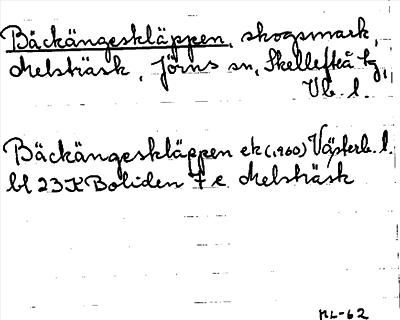 Bäckängeskläppen, skogsmark,
Melsträsk, Jörns sn, Skellefteå tg,
Vb. l.
Bäckängeskläppen ek (1960) Västerb. l.
bl 23 K Boliden 7 e Melsträsk
NL-62